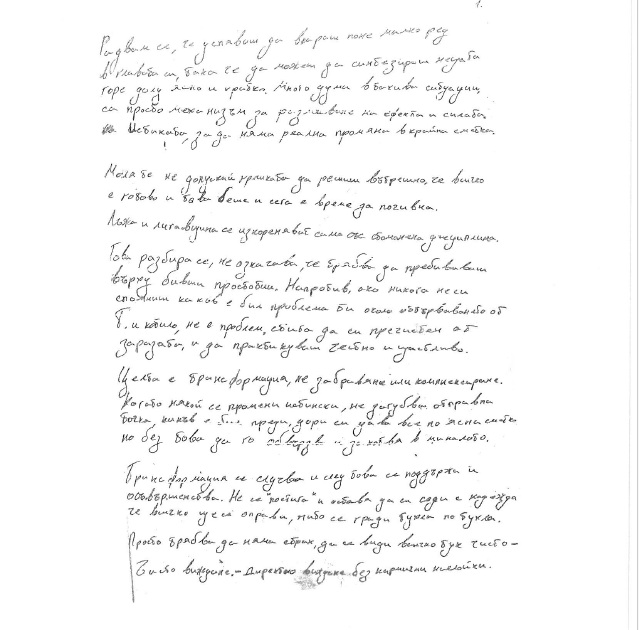 1.
Радвам се, че успяваш да вкараш поне малко ред
в главата си, така че да можеш да синтезираш нещата
горе долу ясно и кратко. Много думи в такива ситуации,
са просто механизъм за разливане на ефекта и силата
на Истината, за да няма реална промяна в крайна сметка.
Моля те не допускай да решиш вътрешно, че всичко
е готово и това беше и сега е време да почивна.
Лъжа и лигавщина се изкореняват само със стоманена дисциплина.
Това разбира се, не означава, че трябва да пребиваваш
върху бивши простотии. Напротив, ако никога не си
спомниш какъв е бил проблема ти около обвързването от
Т. и котило, не е проблем, стига да си пречистен от
заразата, и да практикуваш честно и щастливо.
Целта е трансформация, не забравяне или комплексиране.
Когато някой се промени истински, не загубва отправна
точка, какъв е преди, дори си дава все по ясна сметка
но без това да го в миналото.
Трансформация се случва и след това се поддържа и
усъвършенства. Не се "постига" и остава да си седи с надежда
че всичко ще се оправи, нито се гради буква по буква.
Просто трябва да няма страх, да се види всичко тук чисто-
Чисто виждане. - Директно виждане без никакви наслойки.